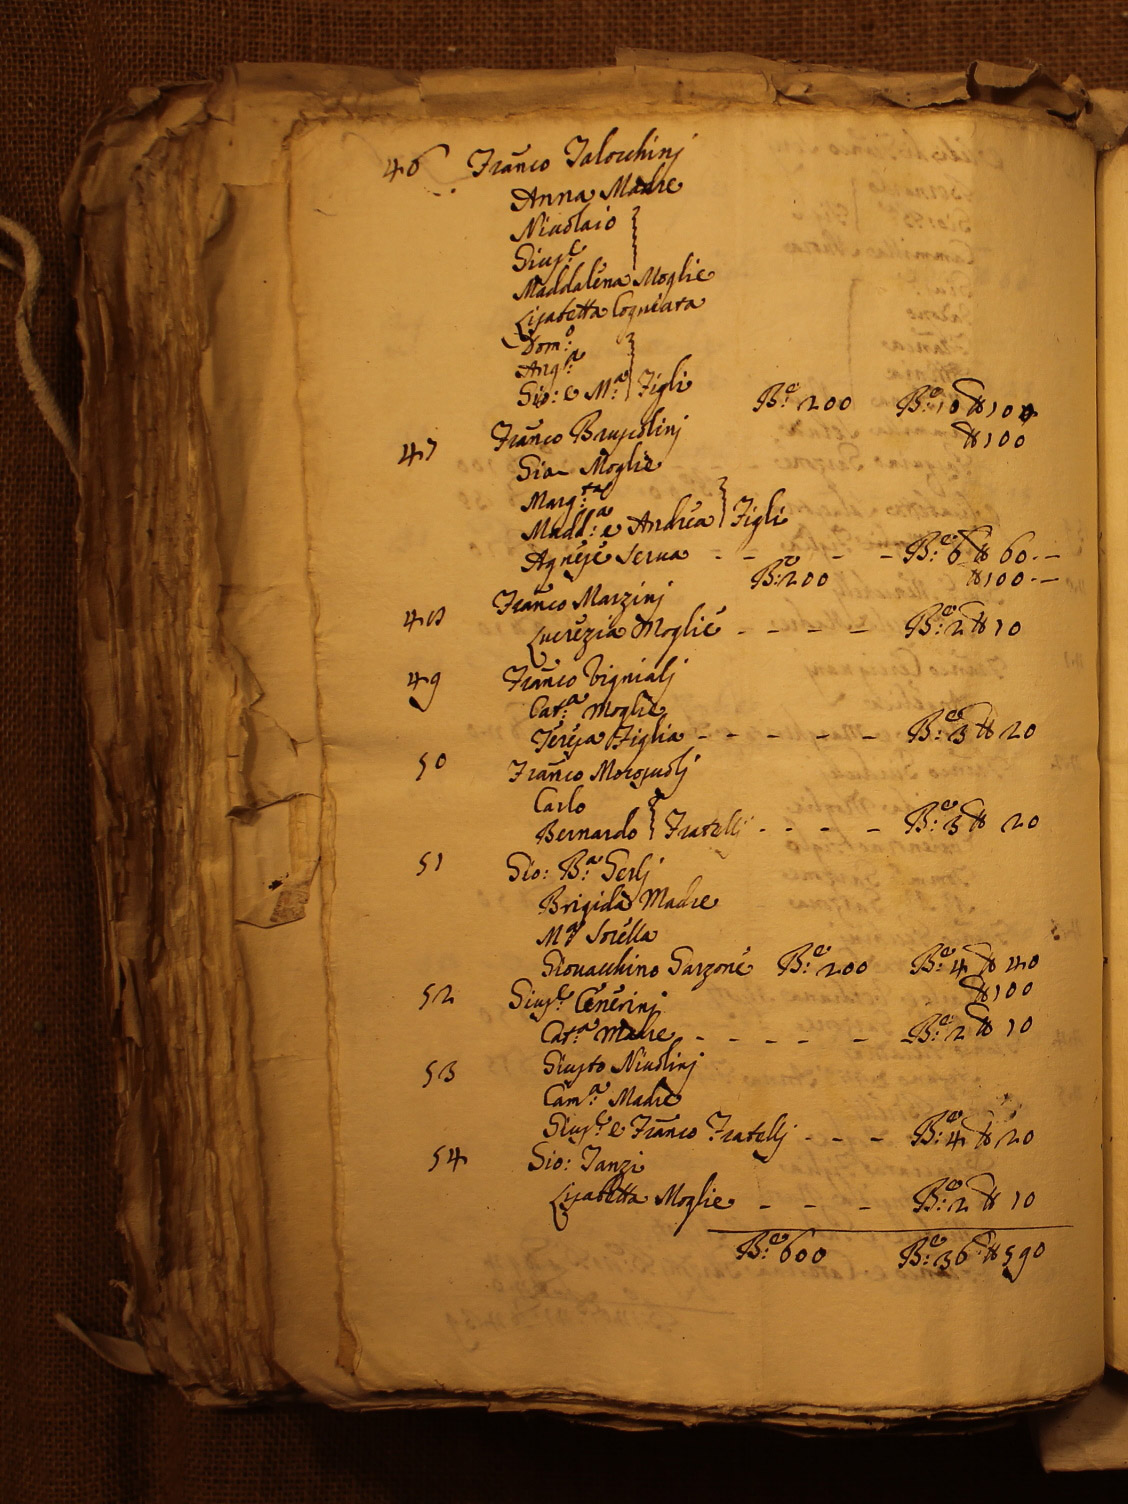 46 Franco Talocchinj
Anna Madre
Niccolaio
Gius.e
Maddalena Moglie
Lisabetta Cogniata
Dom.o
Ang.a
Gio: e M.a Figli B.e 200 B.e 10 ℔ 100
47 Franco Bruscolinj ℔ 100
Gia Moglie
Marg.ta
Madd.a e Andrea Figli
Agnese Serua - - - - B.e 6 ℔ 60.-
B.e 200 ℔ 100.-
48 Franco Marzinj
Lucrezia Moglie - - - - B.e 2 ℔ 10
49 Franco Vignialj
Cat.a Moglie
Teresa Figlia - - - - - - B.e 3 ℔ 20
50 Franco
Carlo
Bernardo Fratellj - - - - B.e 3 ℔ 20
51 Gio: B.a Serlj
Brigida Madre
M.a Sorella
Giouacchino Garzone B.e 200 B.e 4 ℔ 40
52 Gius.e Cenerinj ℔ 100
Cat.a Madre - - - - - - B.e 2 ℔ 10
53 Giusto Niccolinj
Cam.a Madre
Gius.e e Franco Fratellj - - - B.e 4 ℔ 20
54 Gio: Tanzi
Lisabetta Moglie - - - - B.e 2 ℔ 10
B.e 600 B.e 36 ℔ 590